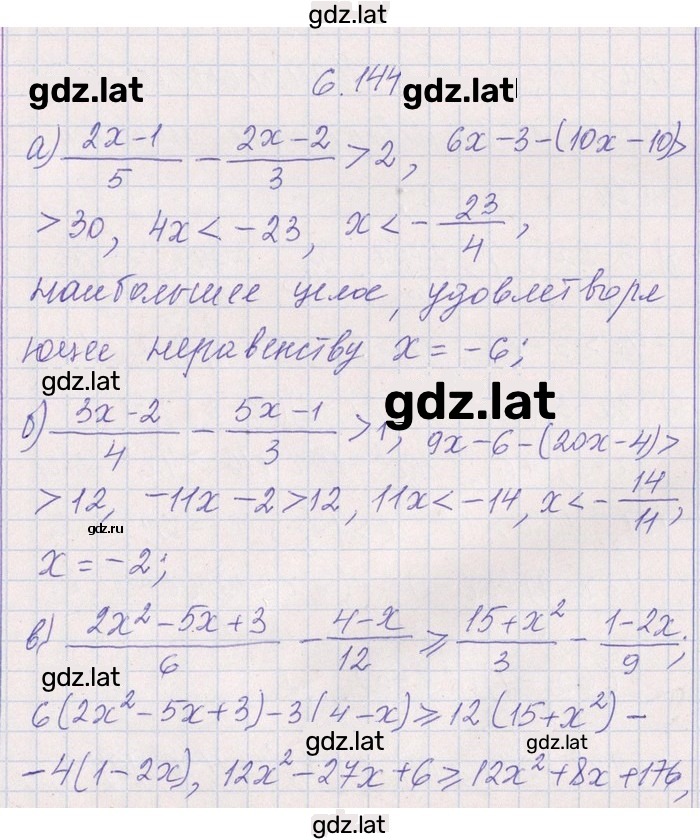 gdz.lat
6.144
gdz.lat gdz.lat
а) (2x-1)/5 - (2x-2)/3 > 2, 6x-3-(10x-10)>
>30, 4x<-23, x<-23/4,
наибольшее целое, удовлетворя
ющее неравенству x=-6;
gdz.lat gdz.lat
б) (3x-2)/4 - (5x-1)/3 > 1, 9x-6-(20x-4)>
>12, -11x-2>12, 11x<-14, x<-14/11,
gdz.ru
x=-2;
в) (2x²-5x+3)/6 - (4-x)/12 ⩾ (15+x²)/3 - (1-2x)/9;
gdz.lat
6(2x²-5x+3)-3(4-x)⩾12(15+x²)-
gdz.lat gdz.lat
-4(1-2x), 12x²-27x+6⩾12x²+8x+176,
gdz.lat